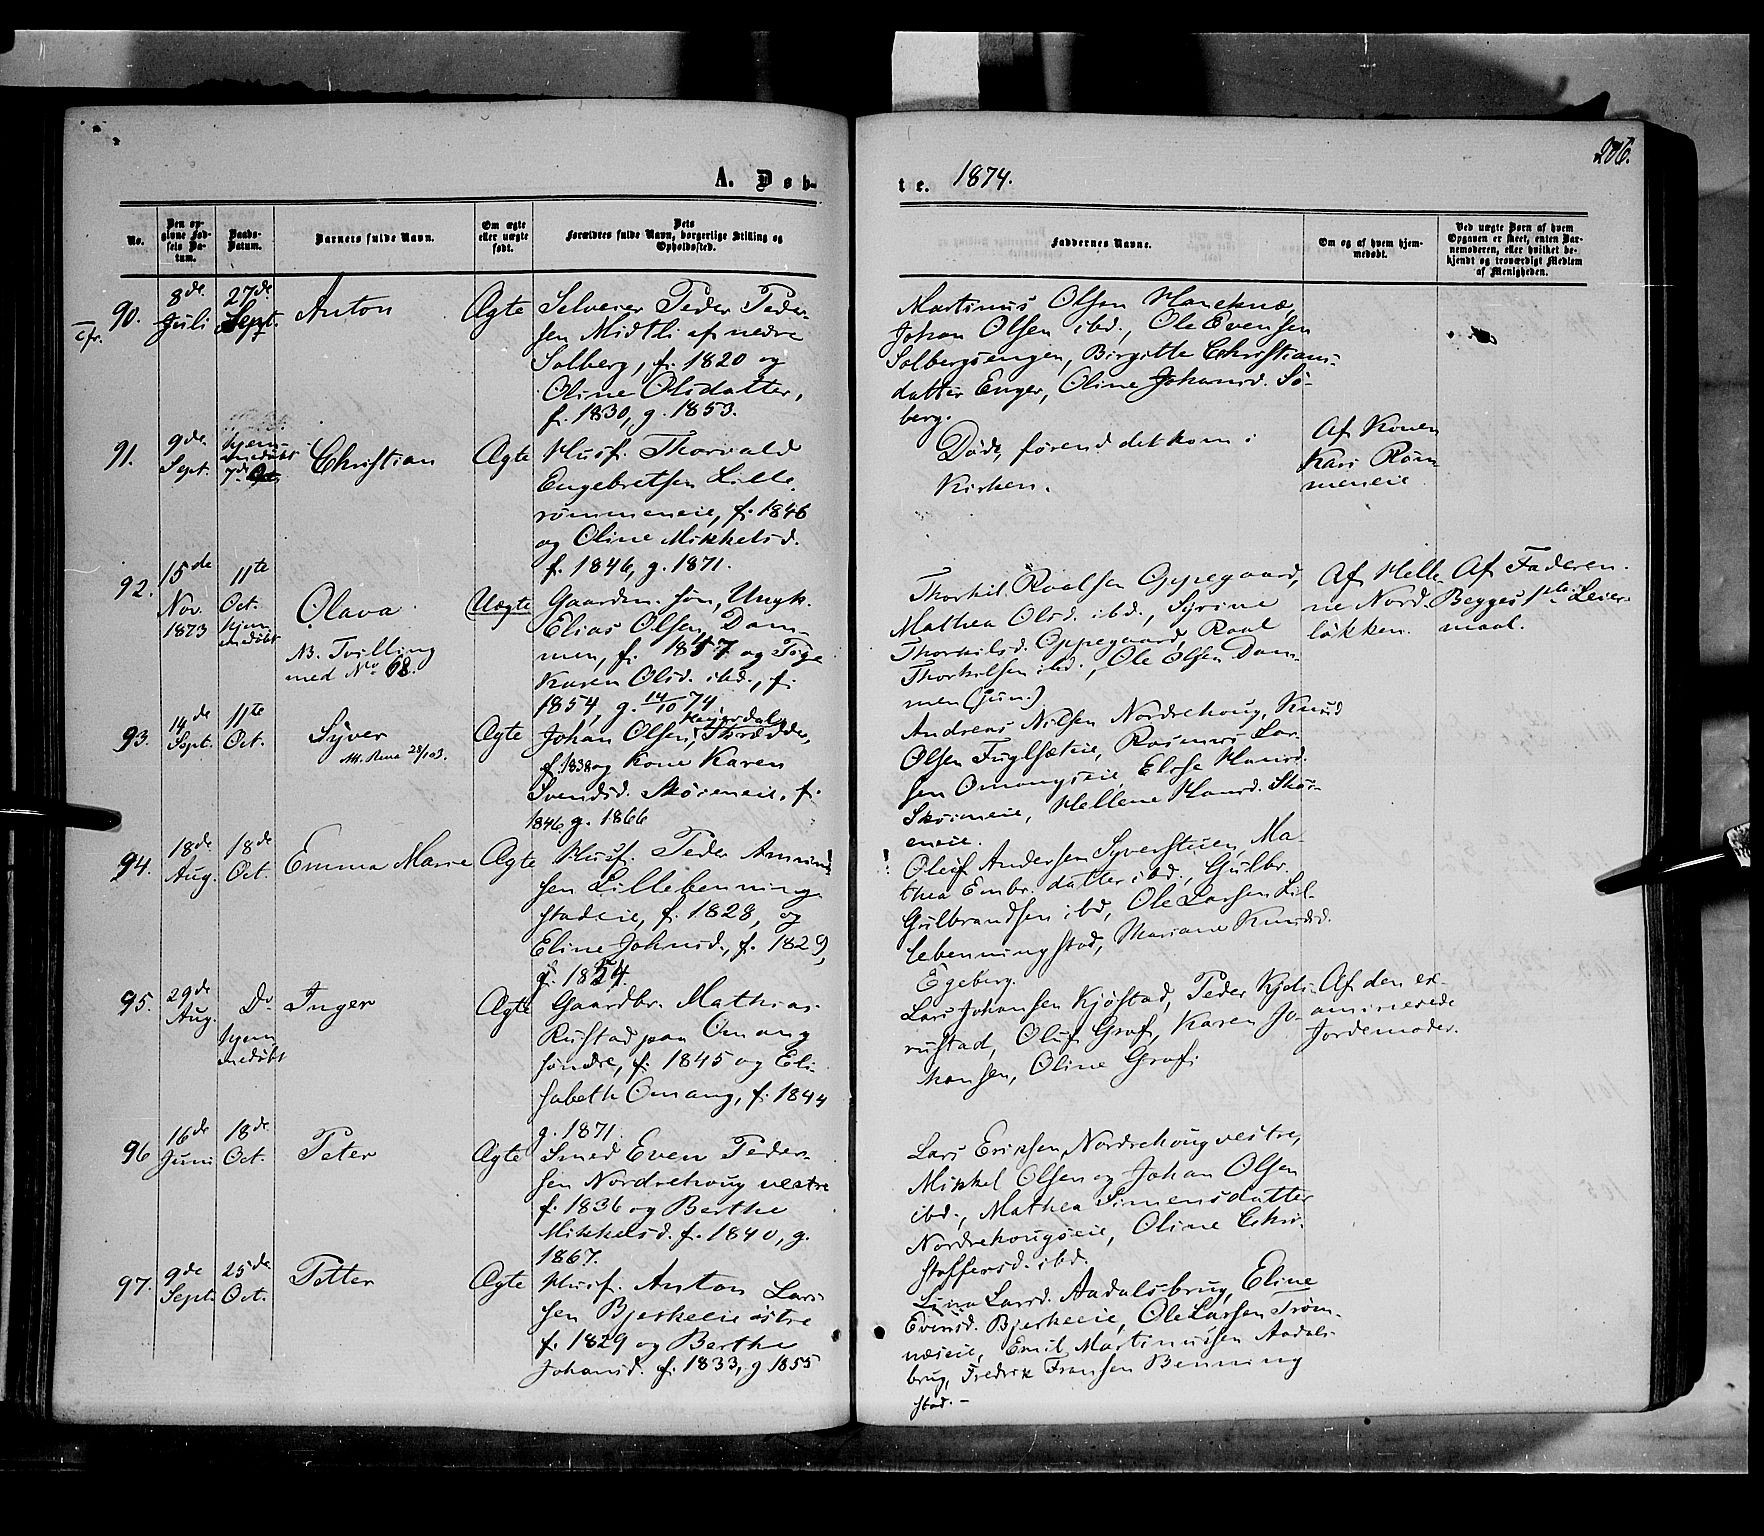 286.
A. Døb-
te. 1874.
No.
Den opgivne Fødsels Datum.
Daabs-Datum.
Barnets fulde Navn.
Om ægte eller uægte født.
Dets Forældres fulde Navn, borgerlige Stilling og Opholdssted.
Faddernes Navne.
Om og af hvem hjemmedøbt.
Ved uægte Børn af hvem Opgaven er skeet, enten Barnemoderen, eller hvilket bekjendt og troværdigt Medlem af Menigheden.
90.
8de Juli
27de Sept.
Anton
Ægte
Selveier Peder Peder-
sen Midtli af nedre
Solberg, f. 1820 og
Oline Olsdatter,
f. 1830, g. 1853.
Martinus Olsen
Johan Olsen ibd., Ole Evensen
Solbergsengen, Birgitte Christians-
datter Enger, Oline Johansd. Sø-
berg.
91.
9de Sept.
Hjemmedøbt
7de
Christian
Ægte
Husf. Thorvald
Engebretsen Lille-
rømmeneie, f. 1846
og Oline Mikkelsd.
f. 1846, g. 1871.
Døde, førend det kom i
Kirken.
Af Konen
Kari Røm-
meneie
92.
15de Nov. 1873
11te Oct.
hjemmedøbt
Olava
NB. Tvilling
med No 68.
Uægte
Gaardm. Søn, Ungk.
Elias Olsen Dam-
men, f. 1857 og Pige
Karen Olsd. ibd., f.
1854, g. 14/10 74
Thorkil Roalsen Oppegaard,
Mathea Olsd. ibd., Syrine
Thorkilsd. Oppegaard, Roal
Thorkilsen ibd., Ole Olsen Dam-
men (jun.)
Af Helle-
ne Nord-
løkken.
Af Faderen.
Begges 1ste Leier-
maal.
93.
14de Sept.
11te Oct.
Syver
Att. Rena 28/1 03.
Ægte
Johan Olsen,
f. 1838 og Kone Karen
Svendsd. Skøieneie, f.
1846, g. 1866
Andreas Nilsen Nordrehoug, Knud
Olsen Fuglsæteie, Rasmus Lar-
sen Omangseie, Else Hansd.
Skøieneie, Hellene Hansd. Skøi-
eneie.
94.
18de Aug.
18de Oct.
Emma Marie
Ægte
Husf. Peder Amund-
sen Lillebenning-
stadeie, f. 1828, og
Eline Johnsd., f. 1829,
g. 1854.
Oluf Andersen Syverstuen, Ma-
thea Embr. datter ibd., Gulbr.
Gulbrandsen ibd, Ole Larsen Lil-
lebenningstad, Mariane Knudsd.
Egeberg.
95.
29de Aug.
Do
hjemmedøbt
Inger
Ægte
Gaardbr. Mathias
Rustad paa Omang
søndre, f. 1845 og Eli-
sabeth Omang, f. 1844
g. 1871.
Lars Johansen Kjøstad, Peder Kjels-
rustad, Oluf Grøf, Karen Jo-
hansen, Oline Grøf.
Af den ex-
aminerede
Jordemoder.
96
16de Juni
18de Oct.
Peter
Ægte
Smed Even Peder-
sen Nordrehoug vestre
f. 1836 og Berthe
Mikkelsd. f. 1840, g.
1867.
Lars Eriksen Nordrehoug vestre,
Mikkel Olsen og Johan Olsen
ibd., Mathea Simensdatter
Nordrehougseie, Oline Chri-
stoffersd. ibd.
97.
9de Sept.
25de Oct.
Petter
Ægte
Husf. Anton Lar-
sen Bjerkeeie østre
f. 1829 og Berthe
Johansd. f. 1833, g 1855
Lina Larsd. Aadalsbrug, Eline
Evensd. Bjerkeeie, Ole Larsen Strøm-
næseie, Emil Martinussen Aadals-
brug, Fredrik Fransen Benning
stad. -